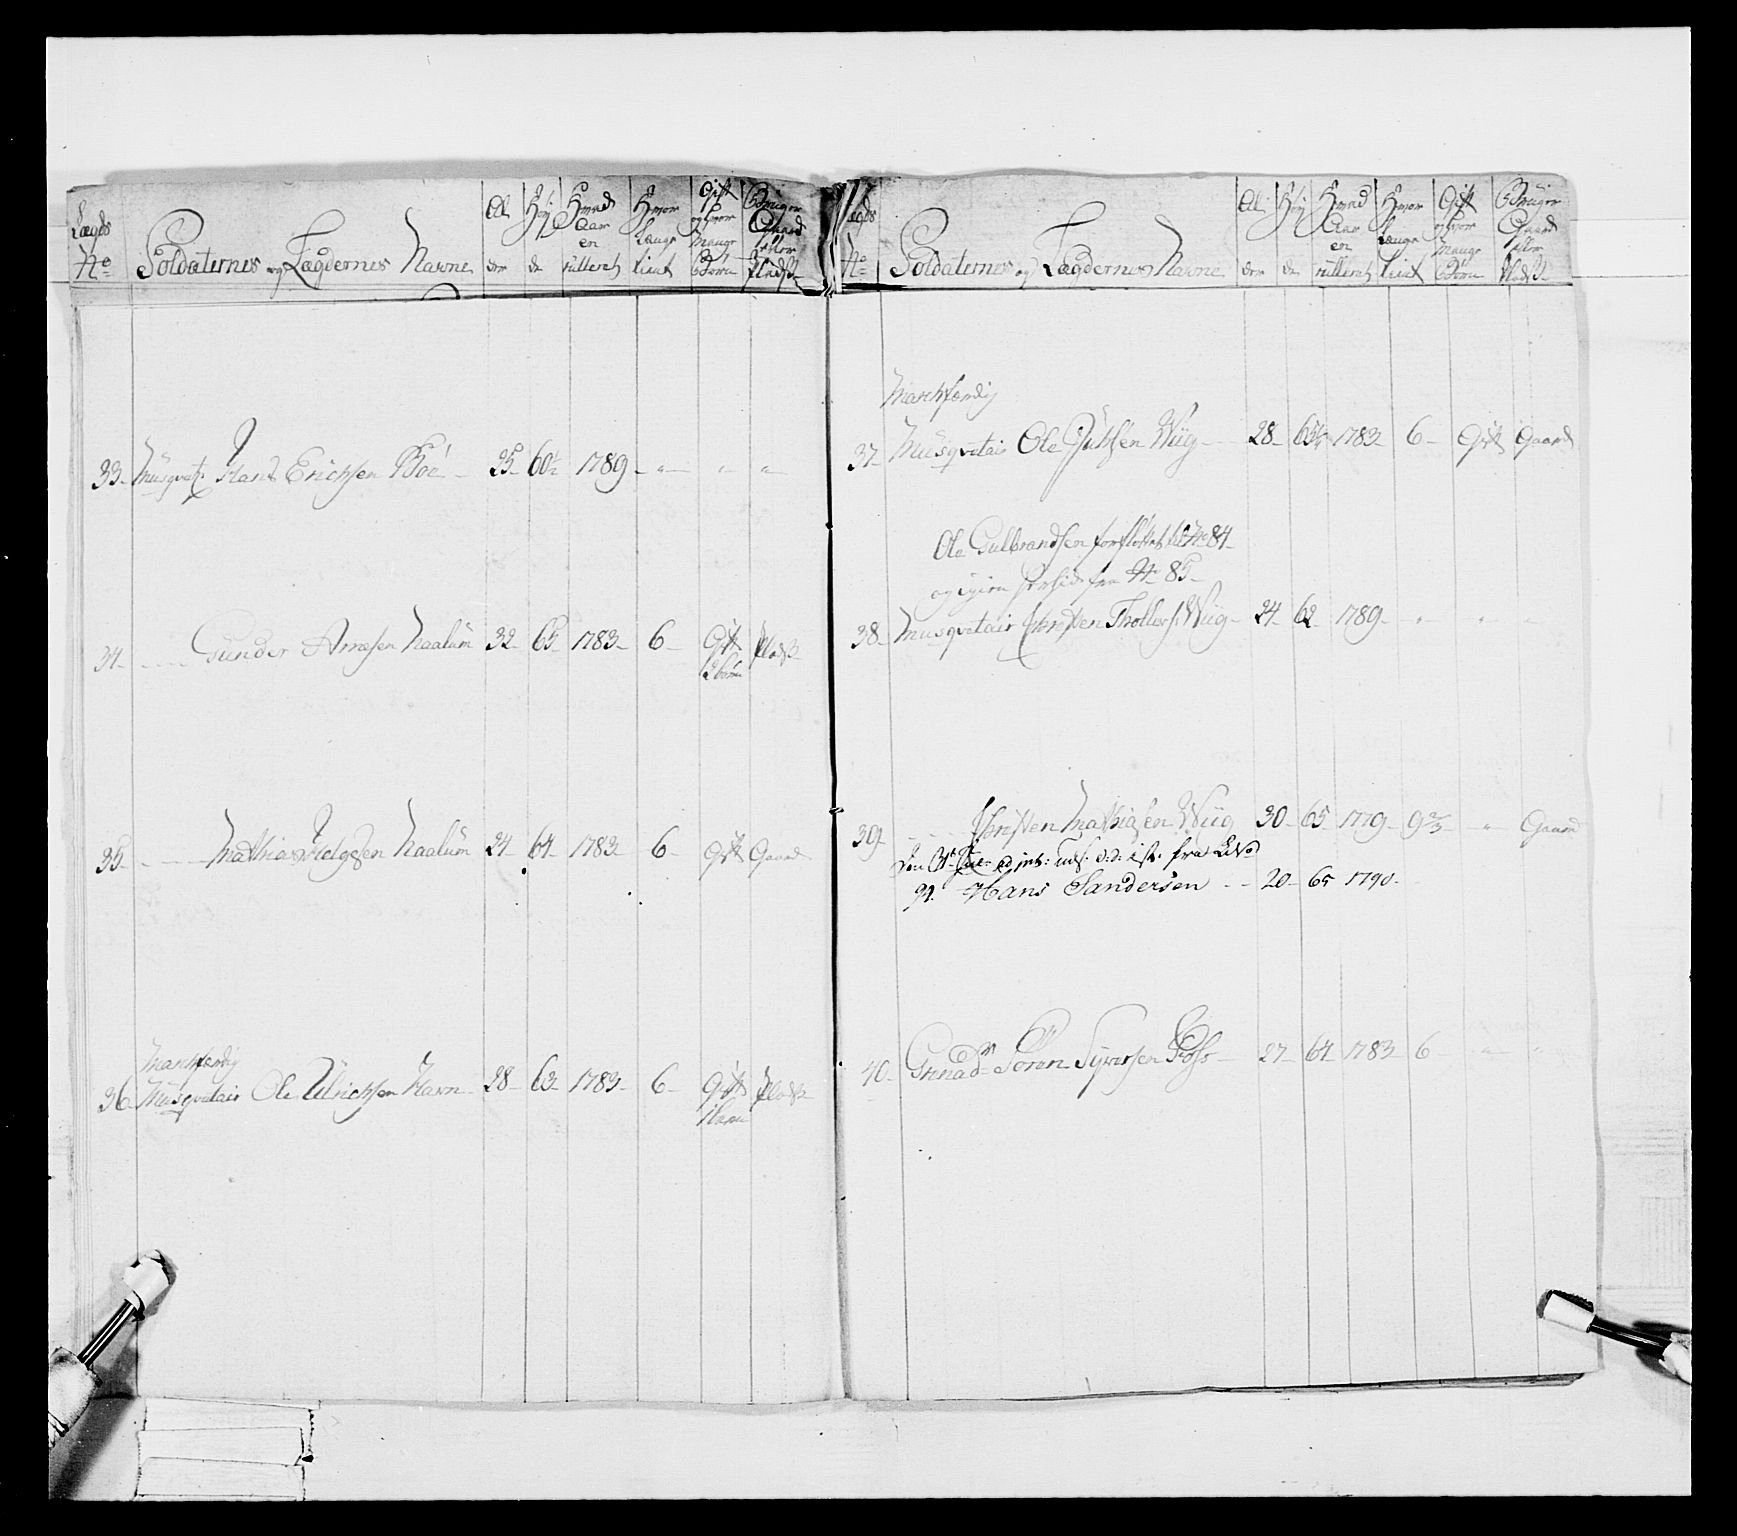 Lægds No Soldaternes og Lægdernes Navne Al der Høy de Hvad Aar en rulleret Hvor Længe tient Gift og hvor Mange Børn Bruger Gaard eller Pladß
33 Musquet: Hans Erichsen Boe 25 60½ 1789 " " "
34 Gunder Arnesen Naalum 32 65 1783 6 Gift Pladß
2 børn
35 Mathias Helgesen Naalum 24 64 1783 6 Gift Gaard
Marchfærdig
36 Musqvetair Ole Ulrichsen Havn 28 63 1783 6 Gift Pladß
1 barn
Lægds No Soldaternes og Lægdernes Navne Al der Høy de Hvad Aar en rulleret Hvor Længe tient Gift og hvor Mange Børn Bruger Gaard eller Pladß
Marchfærdig
37 Musqvetair Ole Wiig 28 1783 6 Gift Gaard
Ole Gulbrandsen forfløttet til No 84
og igien hertil fra No 85
38 Musqvetair Christen Thollefs: Wiig 24 62 1789 " " "
39 Christen Mathiasen Wiig 30 65 1779 9 " Gaard
Den fra
Hans Sandersen 20 65 1790
40 Søren Syversen 27 64 1783 6 " "